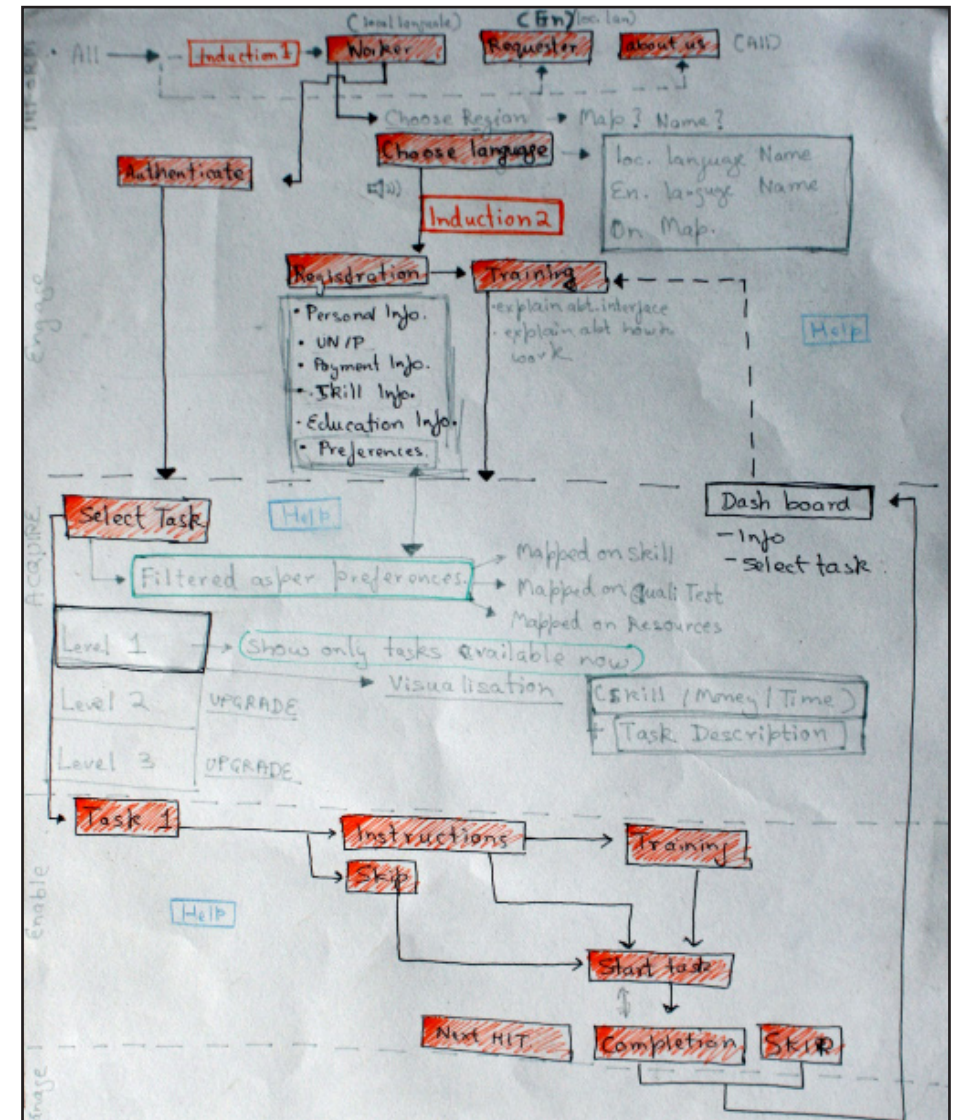 (local language)
(En)/loc. lan)
All
Induction 1
Worker
Requester
about us
(All)
INFORM
Choose Region
Map? Name?
Choose language
loc. language Name
En. languge Name
On Map.
Authenticate
Induction 2
Registration
Training
Engage
• Personal Info.
• UN/P
• Payment Info.
• Skill Info.
- Education Info.
• Preferences.
• explain abt. interface
• explain abt how to
work
Help
Select Task
Help
Dash board
- Info
- Select task
ACQUIRE
Filtered as per preferences.
Mapped on Skill
Mapped on Quali Test
Mapped on Resources
Level 1
Show only tasks available now
Visualisation
(Skill / Money / Time)
+ Task Description
Level 2
UPGRADE
Level 3
UPGRADE
Task 1
Instructions
Training
Skip
Enable
Help
Start task
Next HIT
Completion
SKIP